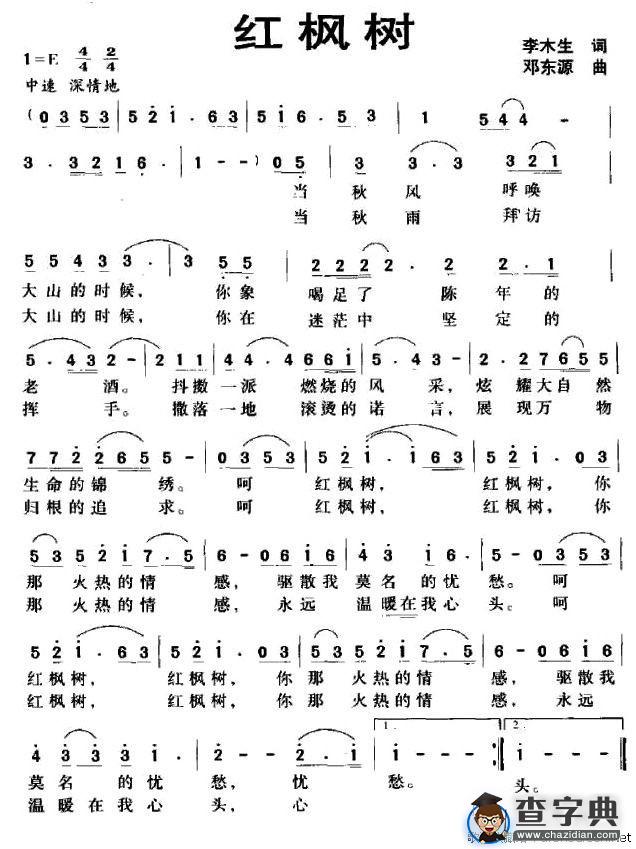 红枫树
1=E 4/4 2/4
李木生 词
邓东源 曲
中速 深情地
(0 3 5 3 | 5 2 1 · 6 3 | 5 1 6 · 5 3 | 1 5 4 4 |
3 · 3 2 1 6 · | 1 - - ) 0 5 | 3 3 · 3 3 2 1 |
当 秋 风 呼唤
当 秋 雨 拜访
5 5 4 3 3 · | 3 5 5 | 2 2 2 2 · 2 2 · 1 |
大山的时候， 你象 喝足了 陈 年的
大山的时候， 你在 迷茫中 坚 定的
5 · 4 3 2 - | 2 1 1 4 4 · 4 | 6 6 6 i 5 · 4 3 - | 2 · 2 7 6 5 5 |
老 酒。 抖擞一派 燃烧的风 采，炫 耀大自然
挥 手。 撒落一地 滚烫的诺 言，展 现万 物
7 7 2 2 6 5 5 - | 0 3 5 3 | 5 2 i · i 6 3 | 5 2 i · 0 3 |
生命的锦 绣。 呵 红枫树， 红枫树， 你
归根的追 求。 呵 红枫树， 红枫树， 你
5 3 5 2 i 7 · 5 | 6 - 0 6 i 6 | 4 3 i 6 · | 5 - 0 3 5 3 |
那 火热的情 感，驱散我 莫名 的忧 愁。 呵
那 火热的情 感，永远 温暖在我心 头。呵
5 2 i · 6 3 | 5 2 i · 0 3 | 5 3 5 2 i 7 · 5 | 6 - 0 6 i 6 |
红枫树， 红枫树， 你那 火热的情 感，驱散我
红枫树， 红枫树， 你那 火热的情 感，永远
4 3 3 3 i | 2 - - 2 · i | 1. i - - - :| 2. i - - - ‖
莫名 的忧 愁， 忧 愁。 头。
温暖在我心 头，心
查字典
www.chazidian.com